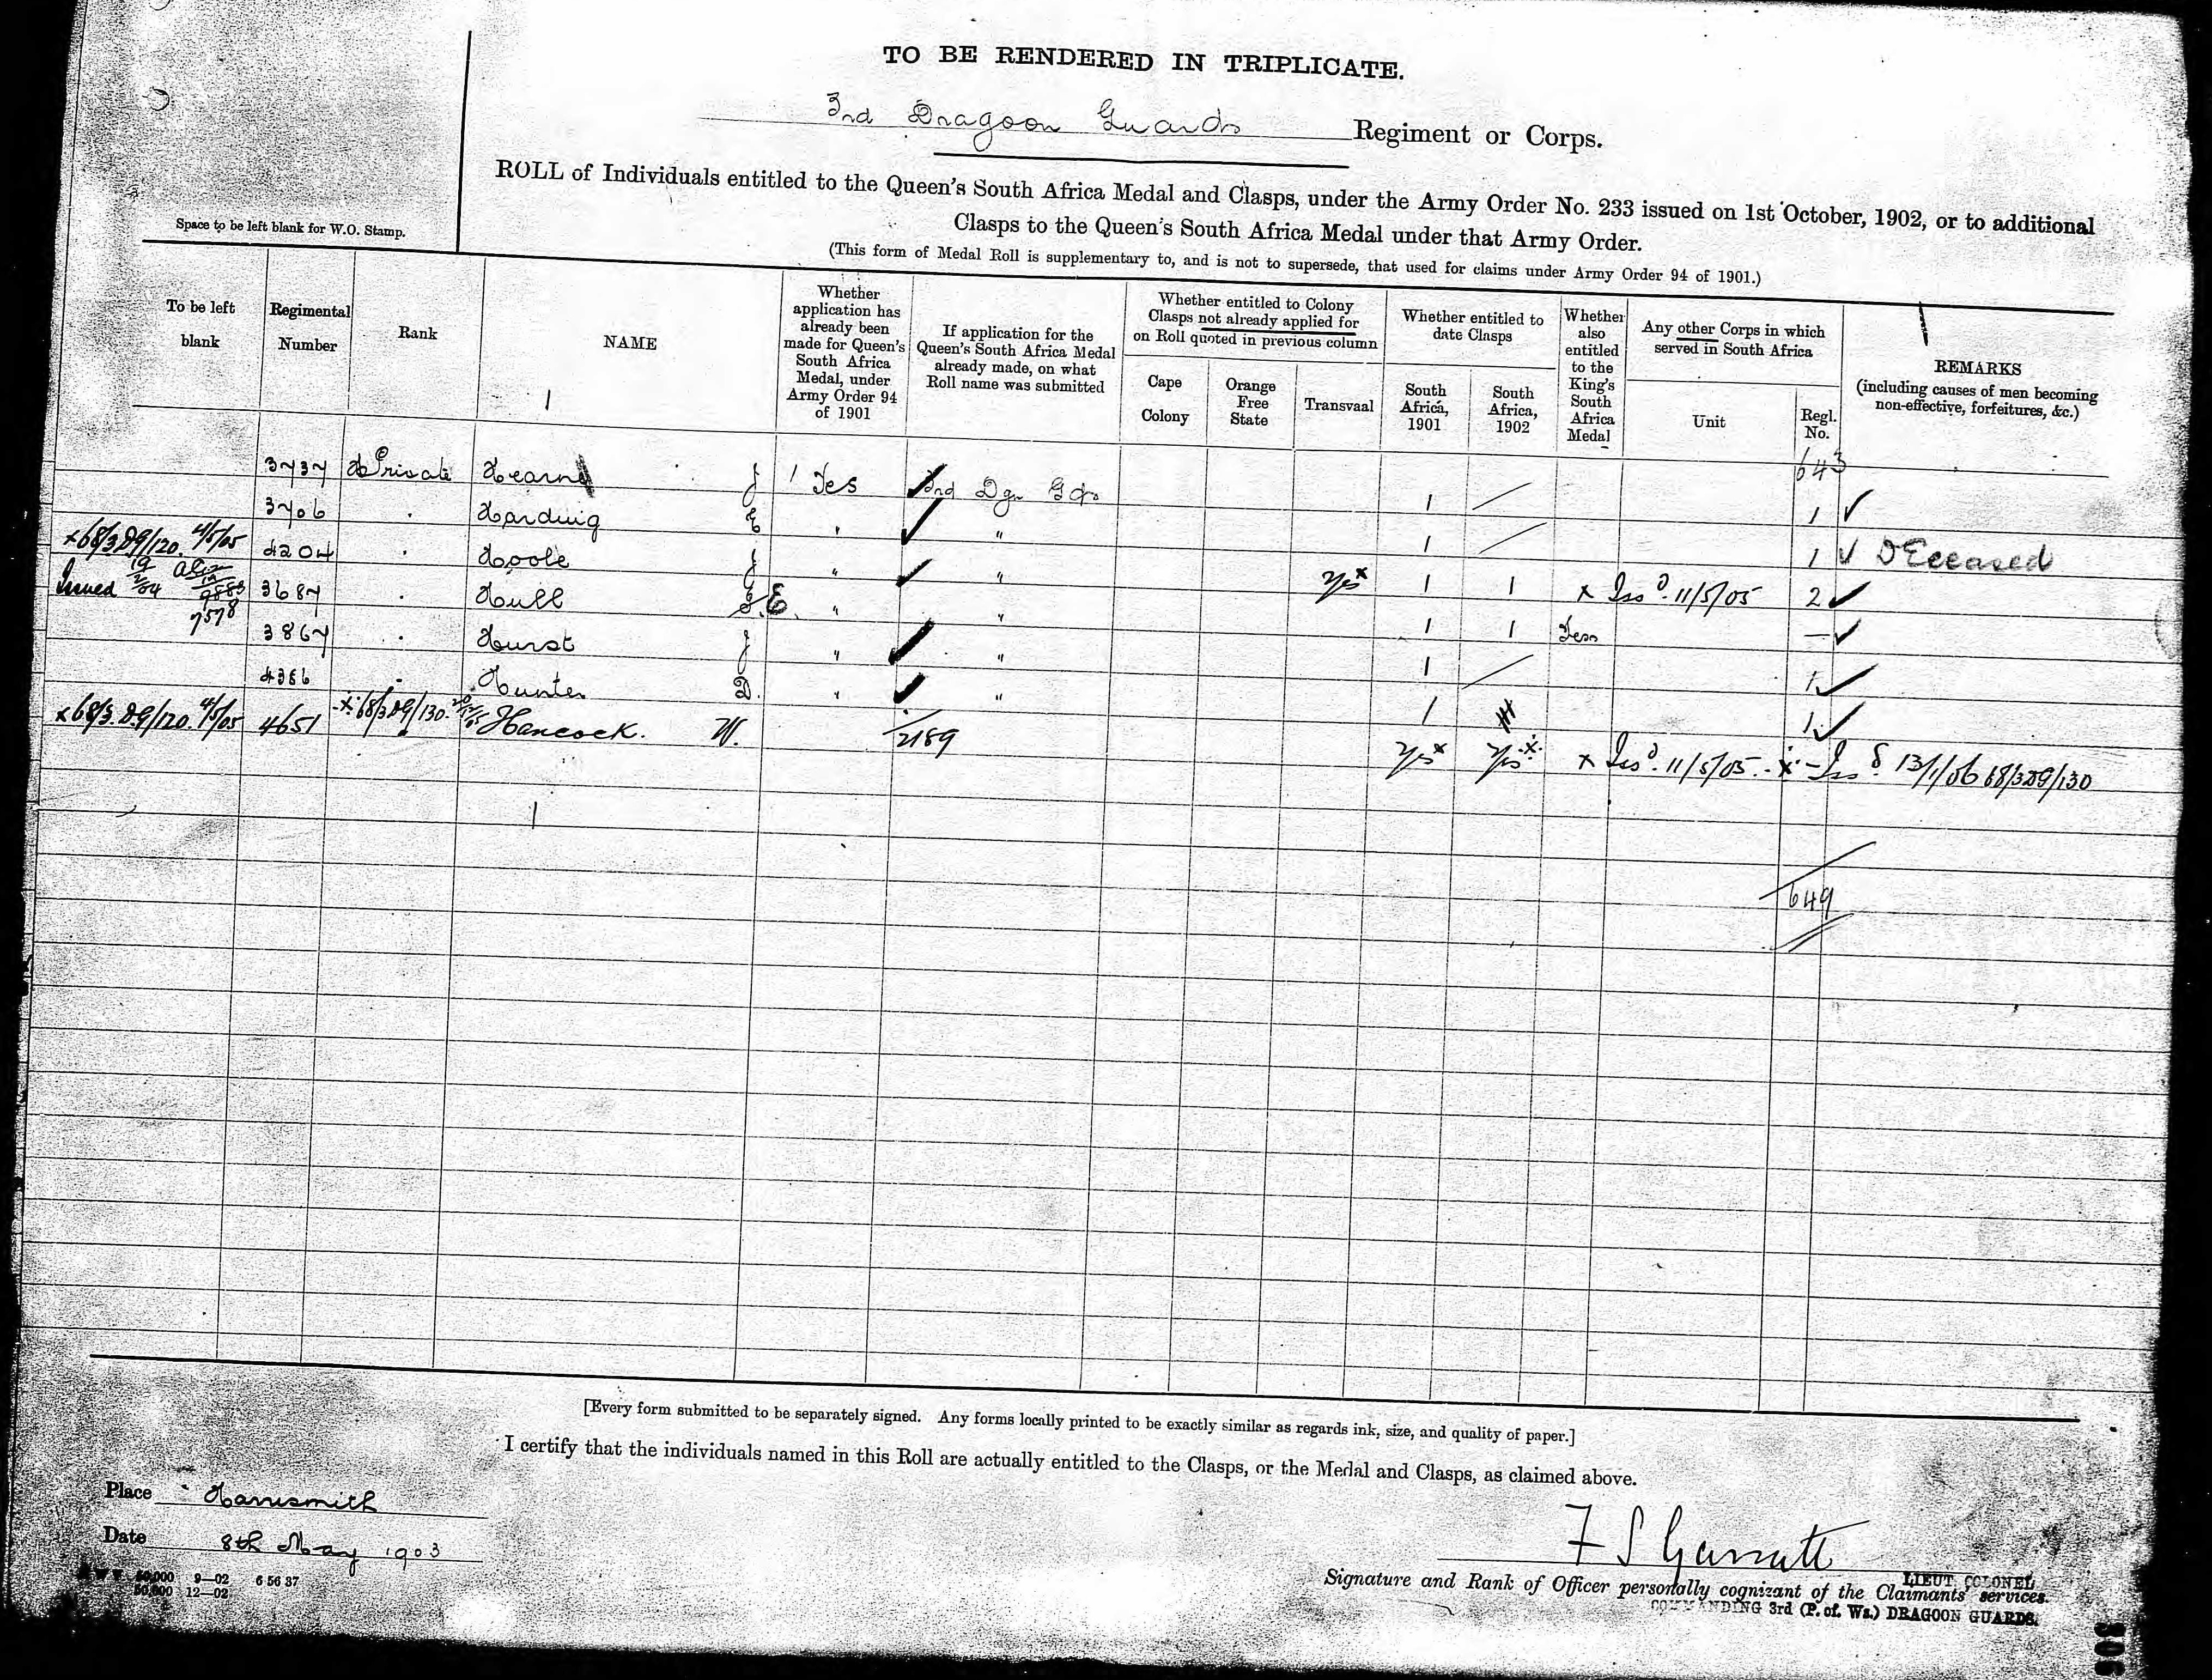 TO BE RENDERED IN TRIPLICATE.
3rd Dragoon Guards Regiment or Corps.
ROLL of Individuals entitled to the Queen's South Africa Medal and Clasps, under the Army Order No. 233 issued on 1st October, 1902, or to additional
Clasps to the Queen's South Africa Medal under that Army Order.
(This form of Medal Roll is supplementary to, and is not to supersede, that used for claims under Army Order 94 of 1901.)
Space to be left blank for W.O. Stamp.
To be left blank
Regimental Number
Rank
NAME
Whether application has already been made for Queen's South Africa Medal, under Army Order 94 of 1901
If application for the Queen's South Africa Medal already made, on what Roll name was submitted
Whether entitled to Colony Clasps not already applied for on Roll quoted in previous column
Cape Colony
Orange Free State
Transvaal
Whether entitled to date Clasps
South Africa, 1901
South Africa, 1902
Whether also entitled to the King's South Africa Medal
Any other Corps in which served in South Africa
Unit
Regl. No.
REMARKS
(including causes of men becoming non-effective, forfeitures, &c.)
643
3737 Private Hearn J 1 Yes 3rd Dgn Gds 1 / 1 ✓
3706 . Harding E " " 1 / 1 ✓ Deceased
x68/3DG/120. 4/5/05 4204 . Hoole J " " Yes x 1 1 x Issd. 11/5/05 2 ✓
Issued 3687 . Hull E. " " 1 1 Yes — ✓
7578
3867 . Hurst J " " 1 / 1 ✓
4386 . Hunter D. " " 1 1 ✓
x68/3.DG/120. 4/5/05 4651 68/3DG/130. Hancock. W. 2189 Yes x Yes x x Issd. 11/5/05. - x - Issd. 13/1/06 68/3DG/130
649
[Every form submitted to be separately signed. Any forms locally printed to be exactly similar as regards ink, size, and quality of paper.]
I certify that the individuals named in this Roll are actually entitled to the Clasps, or the Medal and Clasps, as claimed above.
Place Harrismith
Date 8th May 1903
50,000 9—02 6 56 37
50,000 12—02
F S Garratt
LIEUT COLONEL
Signature and Rank of Officer personally cognizant of the Claimants' services.
COMMANDING 3rd (P. of. Ws.) DRAGOON GUARDS.